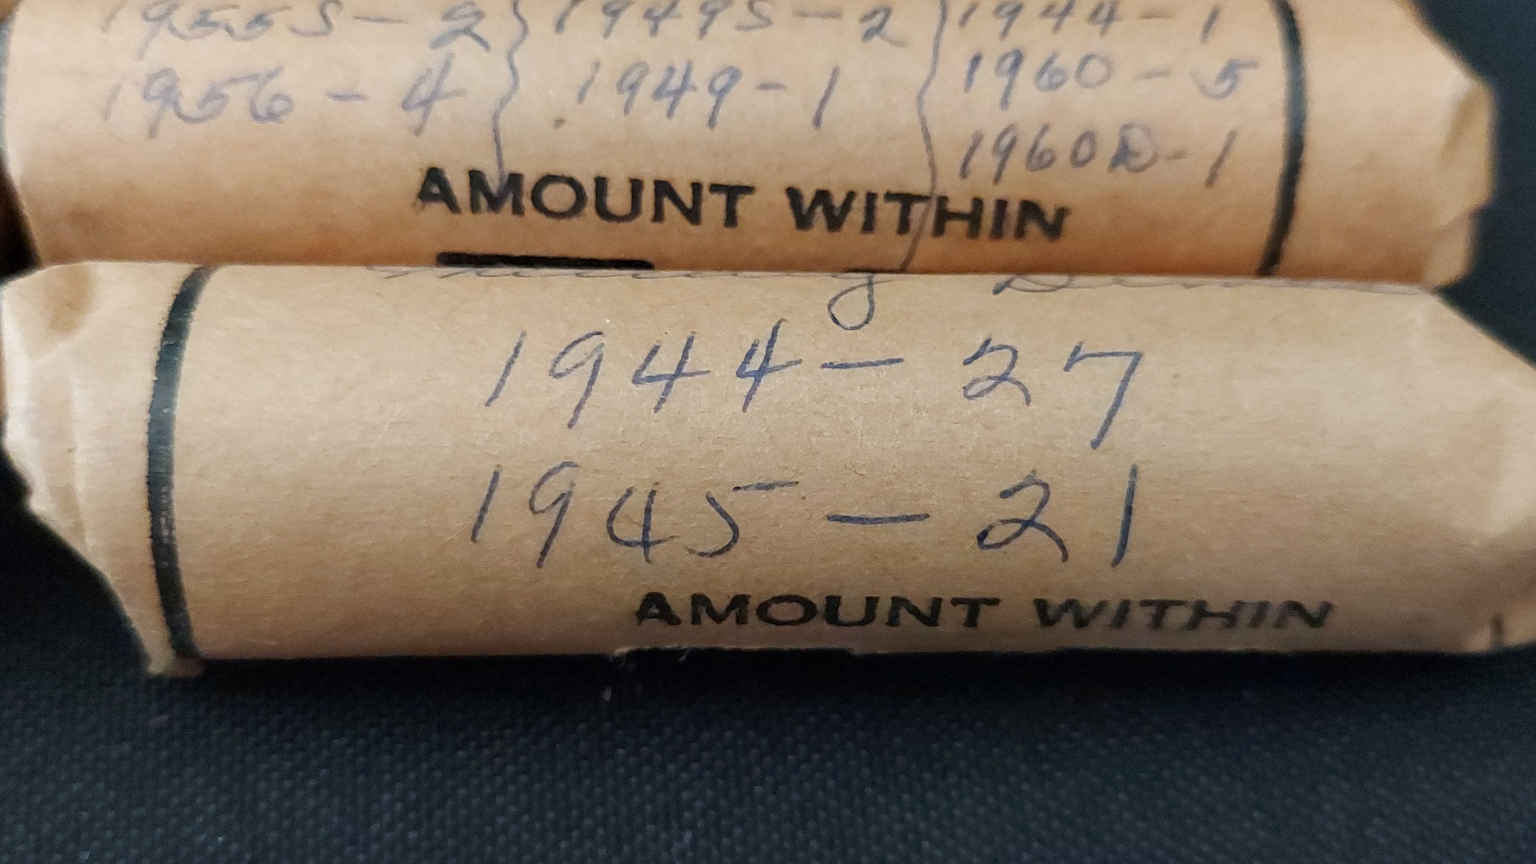 1955S - 2 } 1949S - 2 } 1944 - 1
1956 - 4 1949 - 1 1960 - 5
1960D - 1
AMOUNT WITHIN
1944 - 27
1945 - 21
AMOUNT WITHIN